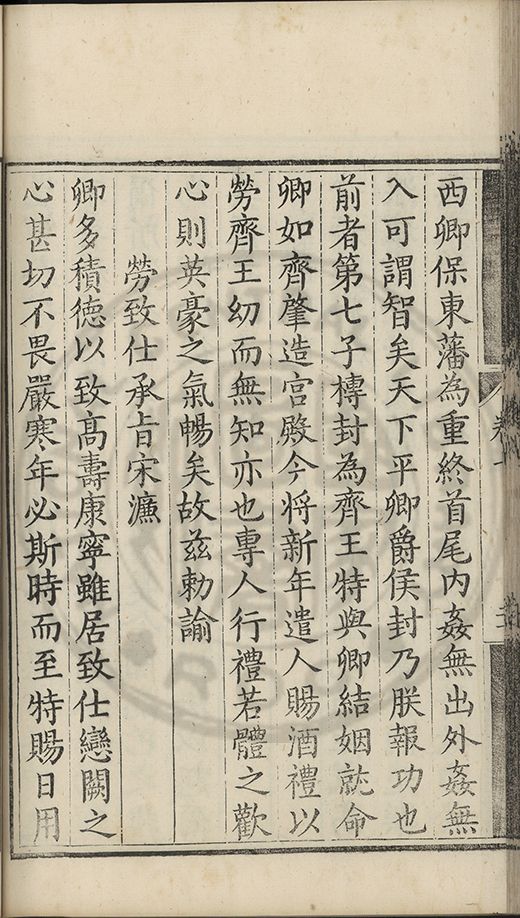 西卿保東藩為重終首尾内姦無出外姦無
入可謂智矣天下平卿爵侯封乃朕報功也
前者第七子榑封為齊王特與卿結姻就命
卿如齊肇造宮殿今將新年遣人賜酒禮以
勞齊王幼而無知亦也專人行禮若體之歡
心則英豪之氣暢矣故茲勅諭
勞致仕承旨宋濂
卿多積德以致高壽康寧雖居致仕戀闕之
心甚切不畏嚴寒年必斯時而至特賜日用